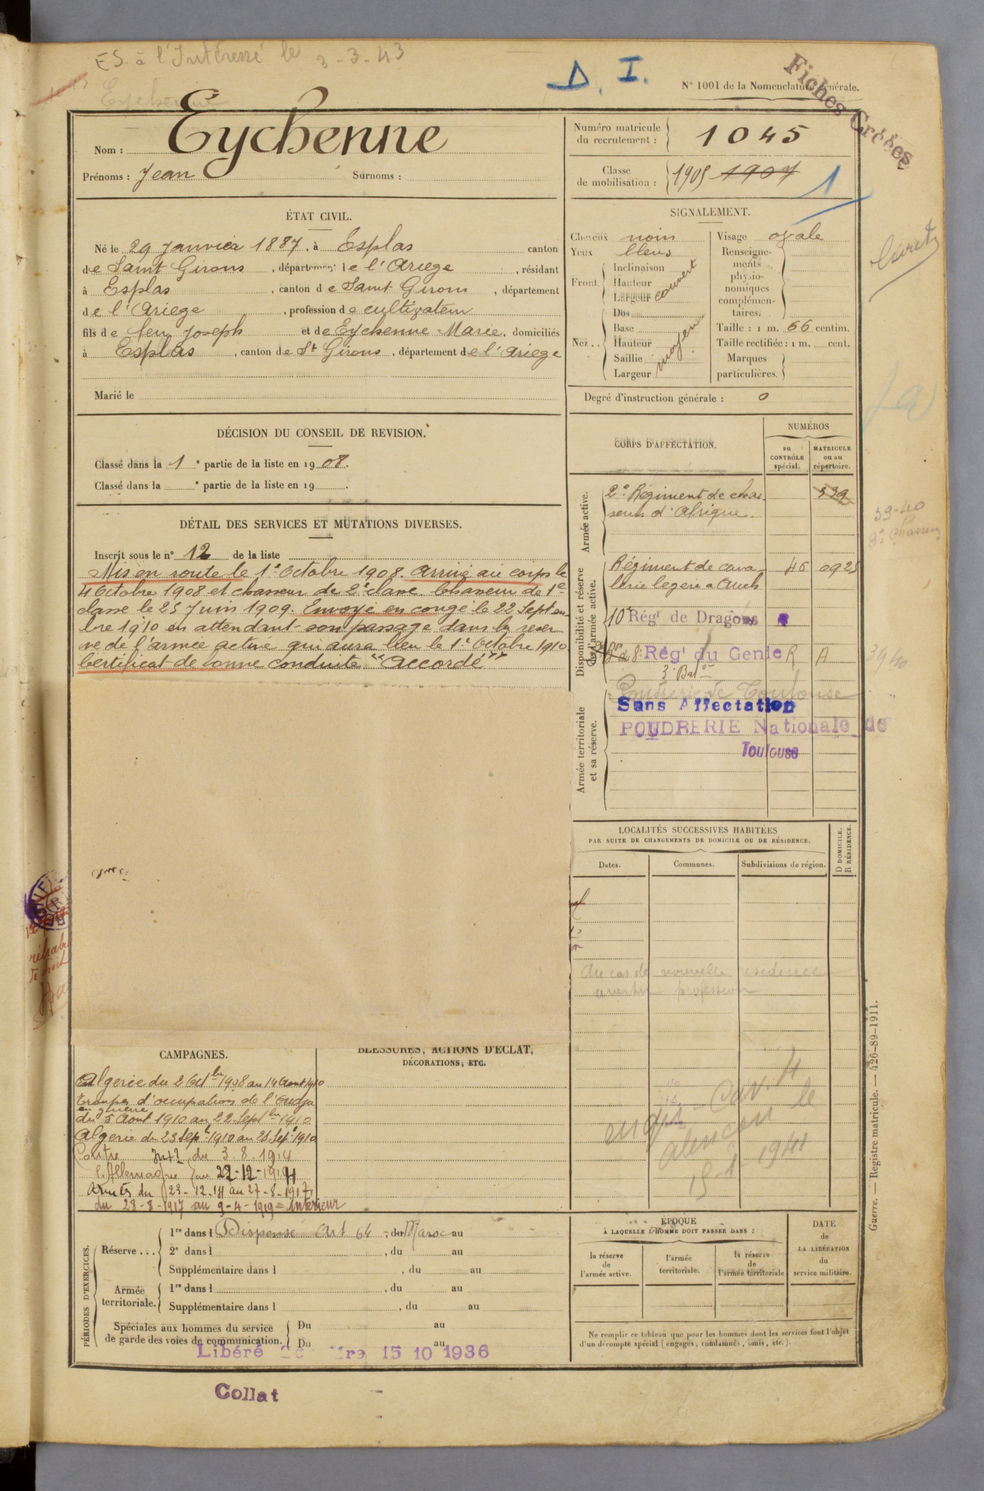 ES. à l'Intéressé le 3-3-43
Eychenne
D. I.
N° 1001 de la Nomenclature générale.
Fiches Créées
Nom : Eychenne
Prénoms : Jean Surnoms :
Numéro matricule du recrutement : 1045
Classe de mobilisation : 1905 1907
1
ÉTAT CIVIL.
Né le 29 Janvier 1887, à Esplas canton
de Saint Girons, département de l'Ariège, résidant
à Esplas, canton de Saint Girons, département
de l'Ariège, profession de cultivateur
fils de feu Joseph et de Eychenne Marie, domiciliés
à Esplas, canton de St Girons, département de l'Ariège
Marié le
SIGNALEMENT.
Cheveux noirs
Yeux bleus
Front
Inclinaison
Hauteur
Largeur
couvert
Nez
Dos
Base
Hauteur
Saillie
Largeur
moyen
Visage ovale
Renseignements physionomiques complémentaires.
Taille : 1 m. 66 centim.
Taille rectifiée : 1 m. cent.
Marques particulières.
Degré d'instruction générale : 0
DÉCISION DU CONSEIL DE REVISION.
Classé dans la 1e partie de la liste en 1908.
Classé dans la e partie de la liste en 19
DÉTAIL DES SERVICES ET MUTATIONS DIVERSES.
Inscrit sous le n° 12 de la liste
Mis en route le 1er Octobre 1908. Arrivé au corps le
4 Octobre 1908 et chasseur de 2e classe. Chasseur de 1e
classe le 25 Juin 1909. Envoyé en congé le 22 Septem
bre 1910 en attendant son passage dans la réser
ve de l'armée active qui aura lieu le 1er Octobre 1910
Certificat de bonne conduite "Accordé"
CORPS D'AFFECTATION.
NUMÉROS
au CONTRÔLE spécial.
MATRICULE ou au répertoire.
Armée active.
2e Régiment de chas 539
seurs d'Afrique.
Disponibilité et réserve de l'armée active.
Régiment de cava 46 0925
lerie légère à Auch
10e Régt de Dragons
Régt du Génie R A
3e Bat
Armée territoriale et sa réserve.
Poudrerie de Toulouse
Sans Affectation
POUDRERIE Nationale de
Toulouse
39-40
LOCALITÉS SUCCESSIVES HABITÉES
PAR SUITE DE CHANGEMENTS DE DOMICILE OU DE RÉSIDENCE.
Dates. Communes. Subdivisions de région.
D DOMICILE. R RÉSIDENCE.
Au cas de nouvelle résidence
profession
CAMPAGNES.
Algérie du 2 Octbre 1908 au 14 Aout 1910
Troupes d'occupation de l'Oudja
en guerre
du 5 Aout 1910 au 22 Septbre 1910.
Algérie du 23 Sepbre 1910 au 25 Sepbre 1910
Contre du 3.8.1914
l'Allemagne au 22-12-1914
Armées du 23-12-14 au 27-8-1917
du 28-8-1917 au 9-4-1919 = Intérieur
BLESSURES, ACTIONS D'ÉCLAT,
DÉCORATIONS, ETC.
PÉRIODES D'EXERCICES.
Réserve ...
1re dans l Dispensé Art 64, du Maroc au
2e dans l, du au
Supplémentaire dans l, du au
Armée territoriale.
1re dans l, du au
Supplémentaire dans l, du au
Spéciales aux hommes du service de garde des voies de communication.
Du au
Du au
Libéré 15 10 1936
Collat
ÉPOQUE
À LAQUELLE L'HOMME DOIT PASSER DANS :
la réserve de l'armée active.
l'armée territoriale.
la réserve de l'armée territoriale
DATE de LA LIBÉRATION du service militaire.
Ne remplir ce tableau que pour les hommes dont les services font l'objet
d'un décompte spécial (engagés, condamnés, omis, etc.).
Guerre. — Registre matricule. — 426-89-1911.